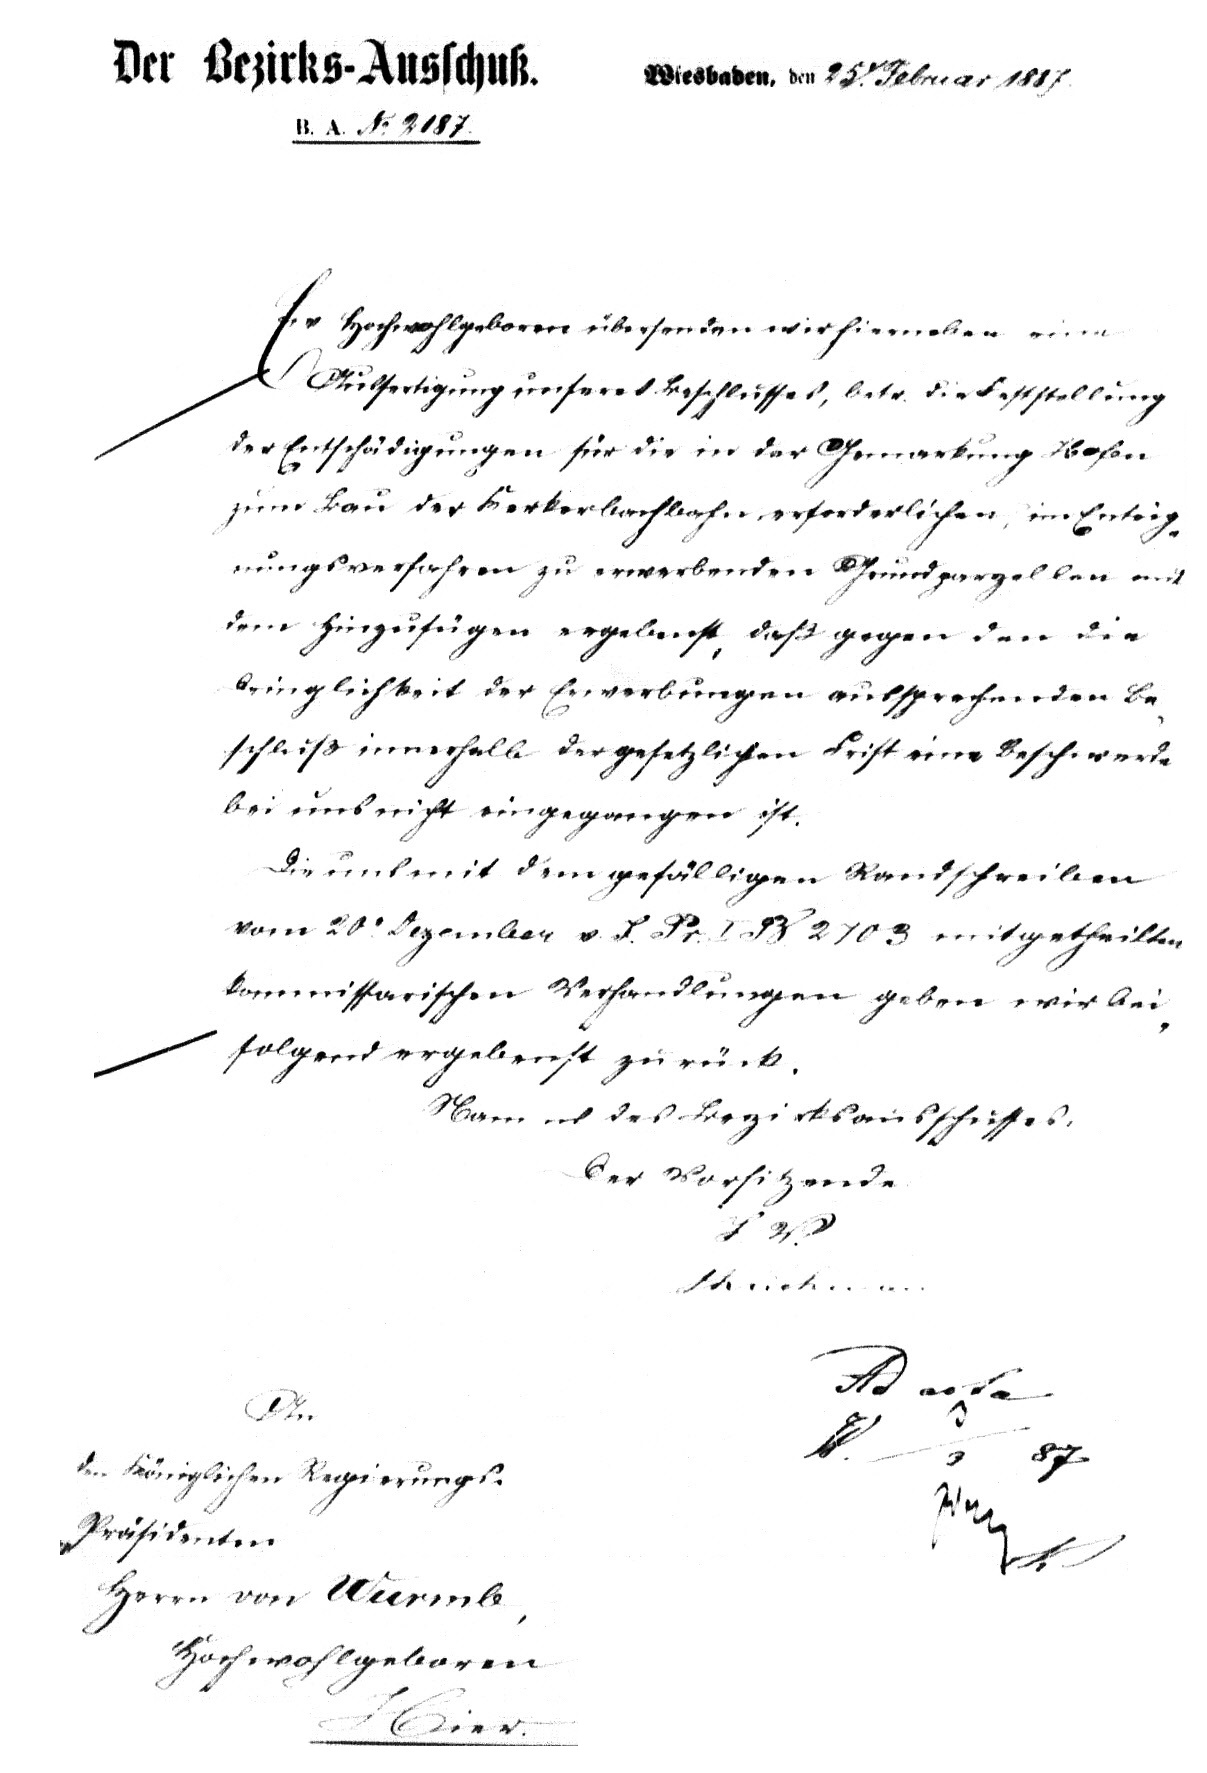 Der Bezirks-Ausschuß.
Wiesbaden, den 25t Februar 1887.
B. A. No 2187.
Ew Hochwohlgeboren übersenden wir hierneben eine
Ausfertigung unseres Beschlusses, betr. die Feststellung
der Entschädigungen für die in der Gemarkung Hofen
zum Bau der Kerkerbachbahn erforderlichen, im Enteig-
nungsverfahren zu erwerbenden Grundparzellen mit
dem Hinzufügen ergebenst, daß gegen den die
Dringlichkeit der Erwerbungen aussprechenden Be-
schluß innerhalb der gesetzlichen Frist eine Beschwerde
bei uns nicht eingegangen ist.
Die uns mit dem gefälligen Randschreiben
vom 20. Dezember v. J. Pr. I B 2703 mitgetheilten
kommissarischen Verhandlungen geben wir bei-
folgend ergebenst zurück.
Namens des Bezirksausschusses.
Der Vorsitzende
J V.
An
den Königlichen Regierungs-
Präsidenten
Herrn von Wurmb,
Hochwohlgeboren
Hier.
Ad acta
W. 3/3 87